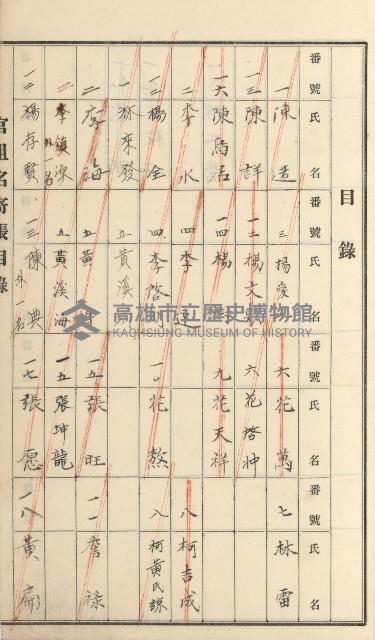 目錄
番號 氏名 番號 氏名 番號 氏名 番號 氏名
一 陳 三 楊 六 花萬 七 林雷
一三 陳詳 一二 楊文 六 花啓冲
一六 陳烏石 一四 楊 九 花天祥
二 李水 四 李 八 柯吉成
一三 楊全 四 李啓 一〇 花熬 八 柯黃氏
一 林來發 五 黃溪
二 李海 五 黃 一五 張旺 一一 詹祿
二 李鎮深 外一名 五 黃溪海 一五 張坤龍
一三 楊存賢 一三 陳典 外一名 一七 張愿 一八 黃
官租名寄帳目錄
高雄市立歷史博物館
KAOHSIUNG MUSEUM OF HISTORY